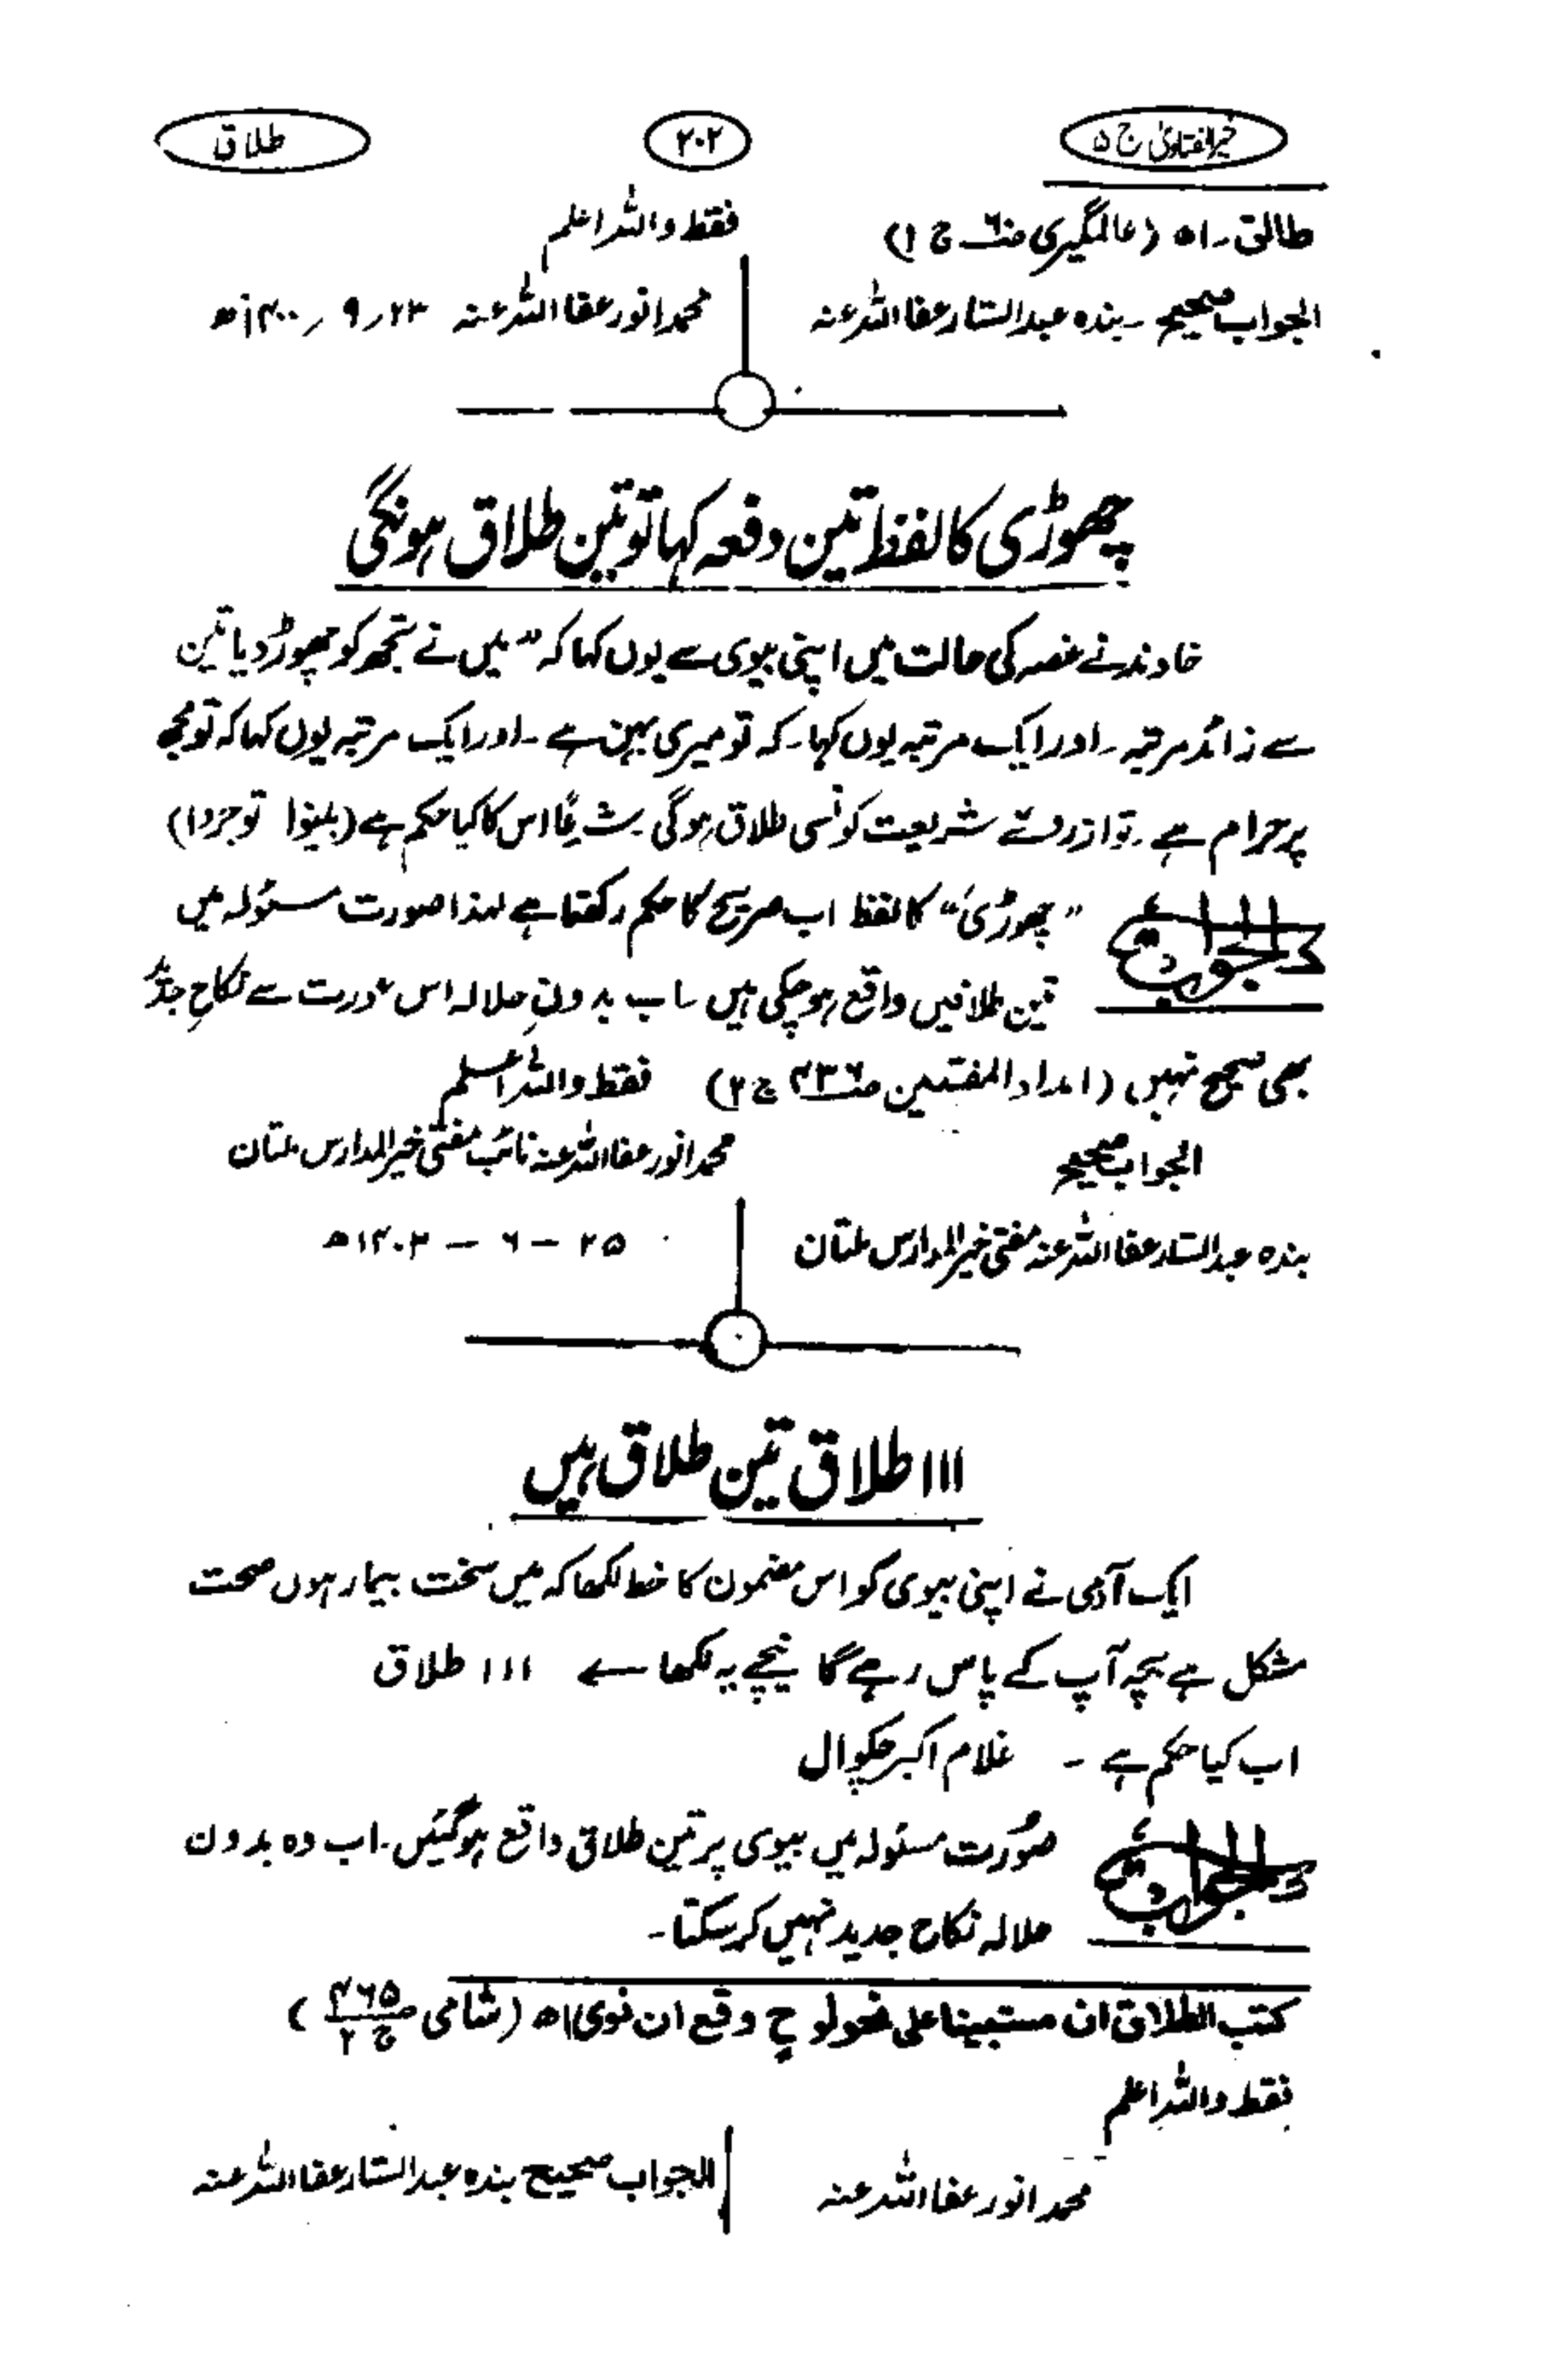 خیر الفتاویٰ ج ۵
۲۰۲
طلاق
طالق ۔ اھ (عالمگیری ج ۱)
فقط واللہ اعلم
الجواب صحیح ۔ بندہ عبدالستار عفا اللہ عنہ
محمد انور عفا اللہ عنہ ۲۳ ؍ ۹ ؍ ۱۴۰۰ھ
چھوڑی کا لفظ تین دفعہ کہا تو تین طلاق ہونگی
خاوند نے غصہ کی حالت میں اپنی بیوی سے یوں کہا کہ "میں نے تجھ کو چھوڑ دیا تین
سے زائد مرتبہ ۔ اور ایک مرتبہ یوں کہا ۔ کہ تو میری بہن ہے ۔ اور ایک مرتبہ یوں کہا کہ تو مجھ
پر حرام ہے ۔ تو از روئے شریعت کونسی طلاق ہوگی ۔ شرعًا اس کا کیا حکم ہے (بینوا توجروا)
الجواب
"چھوڑی" کا لفظ اب صریح کا حکم رکھتا ہے لہذا صورت مسئولہ میں
تین طلاقیں واقع ہو چکی ہیں ۔ اب بدونِ حلالہ اس عورت سے نکاحِ جدید
بھی صحیح نہیں (امداد المفتیین ص۴۳۶ ج ۲) فقط واللہ اعلم
الجواب صحیح
محمد انور عفا اللہ عنہ نائب مفتی خیر المدارس ملتان
بندہ عبدالستار عفا اللہ عنہ مفتی خیر المدارس ملتان
۲۵ – ۶ – ۱۴۰۲ھ
۱۱۱ طلاق تین طلاق ہیں
ایک آدمی نے اپنی بیوی کو اس مضمون کا خط لکھا کہ میں سخت بیمار ہوں صحت
مشکل ہے بچہ آپ کے پاس رہے گا نیچے یہ لکھا ہے ۱۱۱ طلاق
اب کیا حکم ہے ۔ غلام اکبر چکوال
الجواب
صورت مسئولہ میں بیوی پر تین طلاق واقع ہو گئیں ۔ اب وہ بدون
حلالہ نکاح جدید نہیں کر سکتا ۔
کتب الطلاق ان مستبینا علی نحو لوح وقع ان نوی اھ (شامی ص۴۶۵ ج ۲)
فقط واللہ اعلم
محمد انور عفا اللہ عنہ
الجواب صحیح بندہ عبدالستار عفا اللہ عنہ